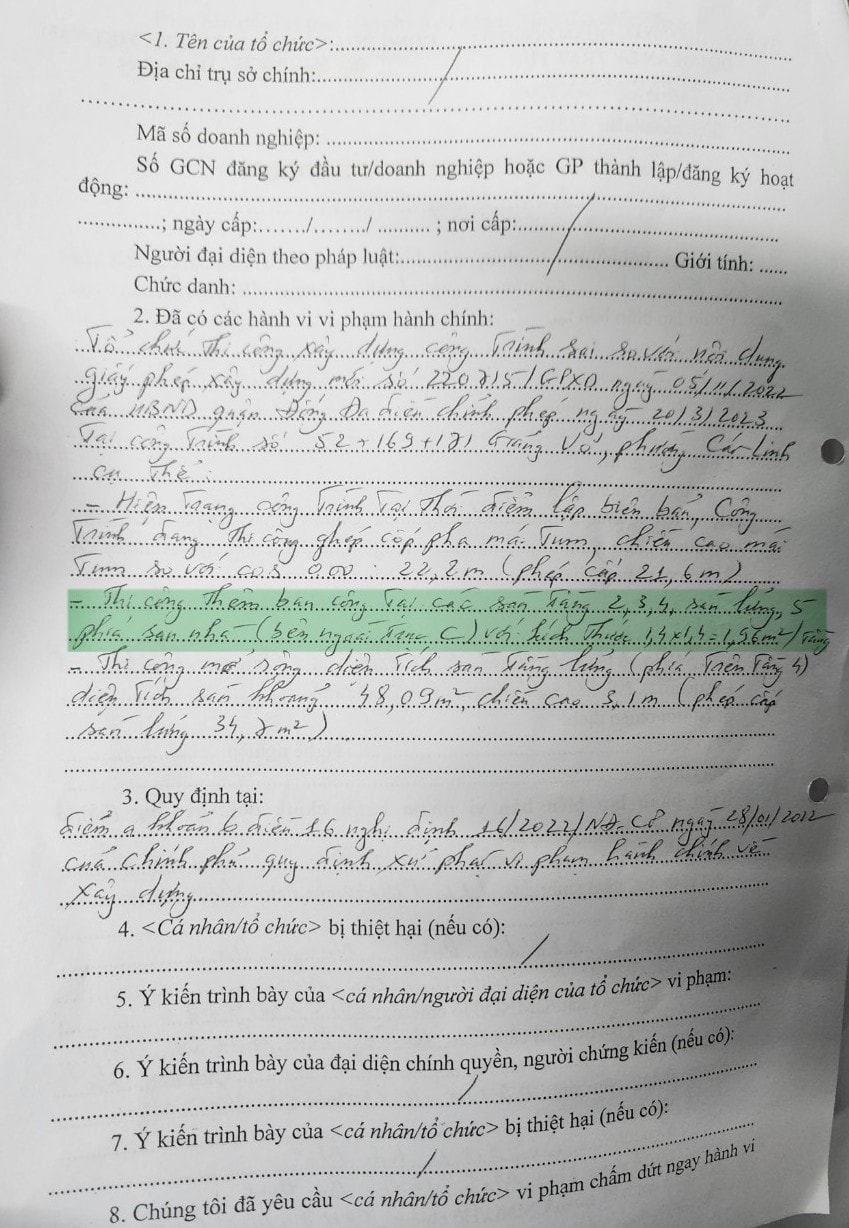 <1. Tên của tổ chức>:
Địa chỉ trụ sở chính:
Mã số doanh nghiệp:
Số GCN đăng ký đầu tư/doanh nghiệp hoặc GP thành lập/đăng ký hoạt
động:
; ngày cấp:......./......../ .......... ; nơi cấp:
Người đại diện theo pháp luật: Giới tính: ......
Chức danh:
2. Đã có các hành vi vi phạm hành chính:
Tổ chức thi công xây dựng công trình sai so với nội dung
giấy phép xây dựng mới số 220715/GPXD ngày 05/11/2022
của UBND quận Đống Đa điều chỉnh phép ngày 20/3/2023
Tại công trình số 52+169+171 Giảng Võ, phường Cát Linh
cụ thể:
- Hiện trạng công trình tại thời điểm lập biên bản, Công
trình đang thi công ghép cốp pha mái Tum, chiều cao mái
Tum so với cos 0.00: 22,2m (phép cấp 21,6m)
- Thi công thêm ban công tại các sàn tầng 2,3,4, sàn lửng, 5
phía sau nhà (bên ngoài trục C) với kích thước 1,4x1,4=1,96m²/tầng
- Thi công mở rộng diện tích sàn tầng lửng (phía trên tầng 4)
diện tích sàn khoảng 48,09m², chiều cao 3,1m (phép cấp
sàn lửng 34,7m²)
3. Quy định tại:
điểm a khoản 6 điều 16 nghị định 16/2022/NĐ-CP ngày 28/01/2022
của Chính phủ quy định xử phạt vi phạm hành chính về
xây dựng
4. <Cá nhân/tổ chức> bị thiệt hại (nếu có):
5. Ý kiến trình bày của <cá nhân/người đại diện của tổ chức> vi phạm:
6. Ý kiến trình bày của đại diện chính quyền, người chứng kiến (nếu có):
7. Ý kiến trình bày của <cá nhân/tổ chức> bị thiệt hại (nếu có):
8. Chúng tôi đã yêu cầu <cá nhân/tổ chức> vi phạm chấm dứt ngay hành vi